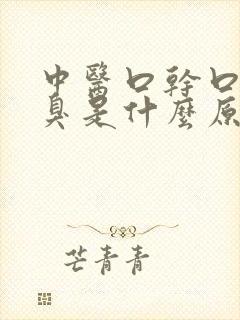 中醫口幹口
臭是什麼原
芒青青